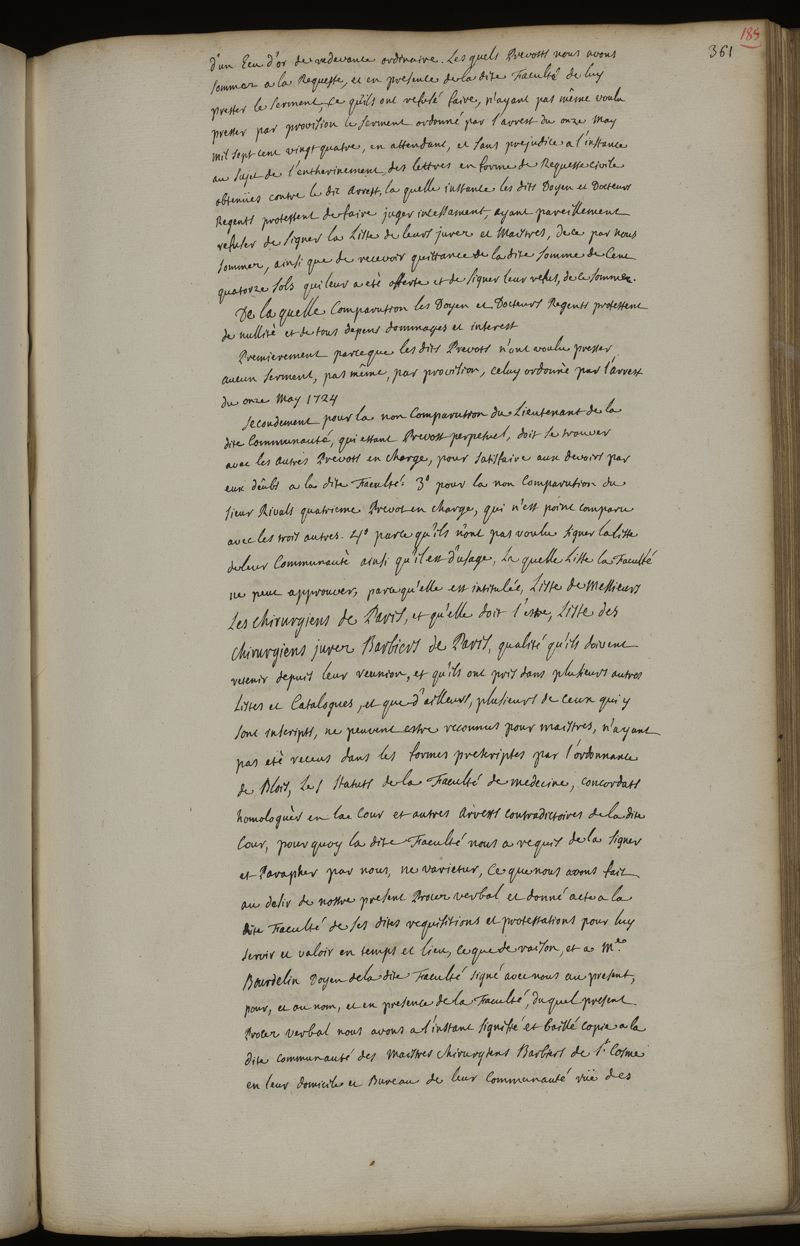 185
361
d'un Ecu d'or de redevance ordinaire. Les quels Prevosts nous avons
sommez a la Requeste, et en presence de la dite Faculté de luy
prester le serment, Ce qu'ils ont refusé faire, n'ayant pas même voulu
prester par provision le serment ordonné par l'arrest du onze May
mil sept cent vingt quatre, en attendant, et sans prejudice a l'instance
au sujet de l'entherinement des lettres en forme de Requeste civile
obtenües contre le dit Arrest, la quelle instance les dits Doyen et Docteurs
Regents protestent de faire juger incessament, ayant pareillement
refusez de signer la Liste de leurs jurez et Maistres, de ce par nous
sommez, ainsi que de recevoir quittance de la dite somme de Cent
quatorze sols qui leur a eté offerte et de signer leur refus, de ce sommez.
De la quelle Comparution les Doyen et Docteurs Regents protestent
de nullité et de tous depens dommages et interest
Premierement parceque les dits Prevots n'ont voulu prester
aucun serment, pas même, par provision, celuy ordonné par l'arrest
du onze May 1724
Secondement pour la non Comparution du Lieutenant de la
dite Communauté, qui estant Prevost perpetuel, doit se trouver
avec les autres Prevots en charge, pour satisfaire aux devoirs par
eux dûbs a la dite Faculté. 3° pour la non Comparution du
sieur Rivals quatrieme Prevot en charge, qui n'est point comparu
avec les trois autres. 4° parce qu'ils n'ont pas voulu signer la liste
de leur Communauté ainsi qu'il est d'usage, La quelle Liste la Faculté
ne peut approuver, parcequ'elle est intitulée, Liste de Messieurs
Les chirurgiens de Paris, et qu'elle doit l'estre, Liste des
chirurgiens jurez Barbiers de Paris, qualité qu'ils doivent
retenir depuis leur reunion, et qu'ils ont pris dans plusieurs autres
Listes et Catalogues, et que d'ailleurs, plusieurs de ceux qui y
sont inscripts, ne peuvent estre reconnus pour maistres, n'ayant
pas eté recens dans les formes prescriptes par l'ordonnance
de Blois, Les Statuts de la Faculté de medecine, concordats
homologués en la Cour et autres Arrests contradictoires de la dite
Cour, pour quoy la dite Faculté nous a requis de la signer
et Parapher par nous, ne varietur, Ce que nous avons fait
au desir de nostre present Procez verbal et donné acte a la
dite Faculté de ses dites requisitions et protestations pour luy
servir et valoir en temps et lieu, ce que de raison, et a M.re
Bourdelin Doyen de la dite Faculté signé avec nous au present,
pour, et au nom, et en presence de la Faculté, du quel present
Procez verbal nous avons a l'instant signifié et baillé copie a la
dite communauté des maistres chirurgiens Barbiers de S.t Cosme
en leur domicile et Bureau de leur Communauté rüe des